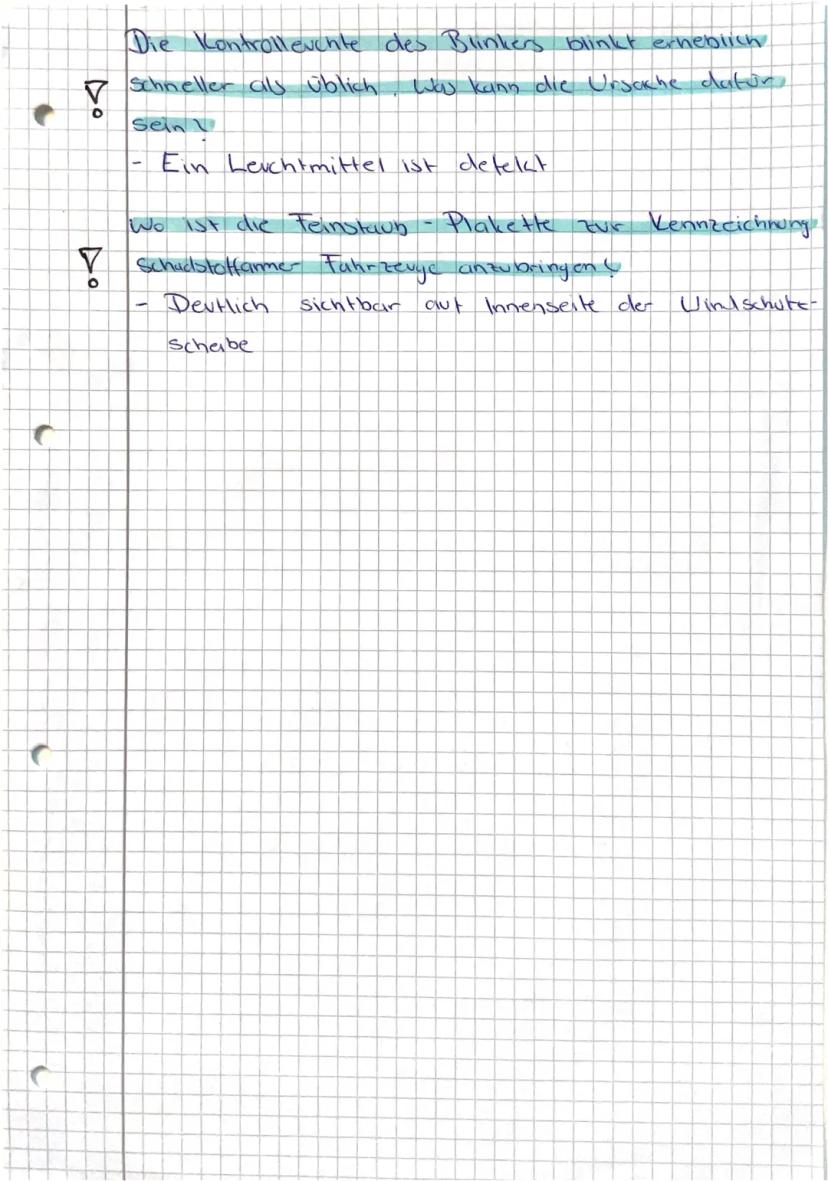 Die Kontrolleuchte des Blinkers blinkt erheblich
! schneller als üblich. Was kann die Ursache dafür
sein?
- Ein Leuchtmittel ist defekt
Wo ist die Feinstaub - Plakette zur Kennzeichnung
! schadstoffarmer Fahrzeuge anzubringen?
- Deutlich sichtbar auf Innenseite der Windschutz-
scheibe